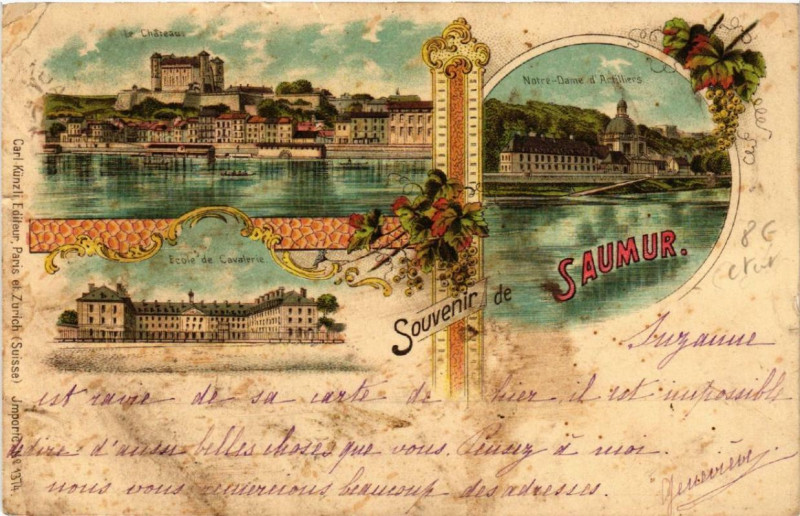 Le Château
Notre-Dame d'Ardilliers
Ecole de Cavalerie
Souvenir de
SAUMUR.
Carl Künzli Editeur, Paris et Zurich (Suisse)
8€
Suzanne
est ravie de sa carte de hier il est impossible
de dire d'aussi belles choses que vous. Pensez à moi.
nous vous remercions beaucoup des adresses.
Geneviève.